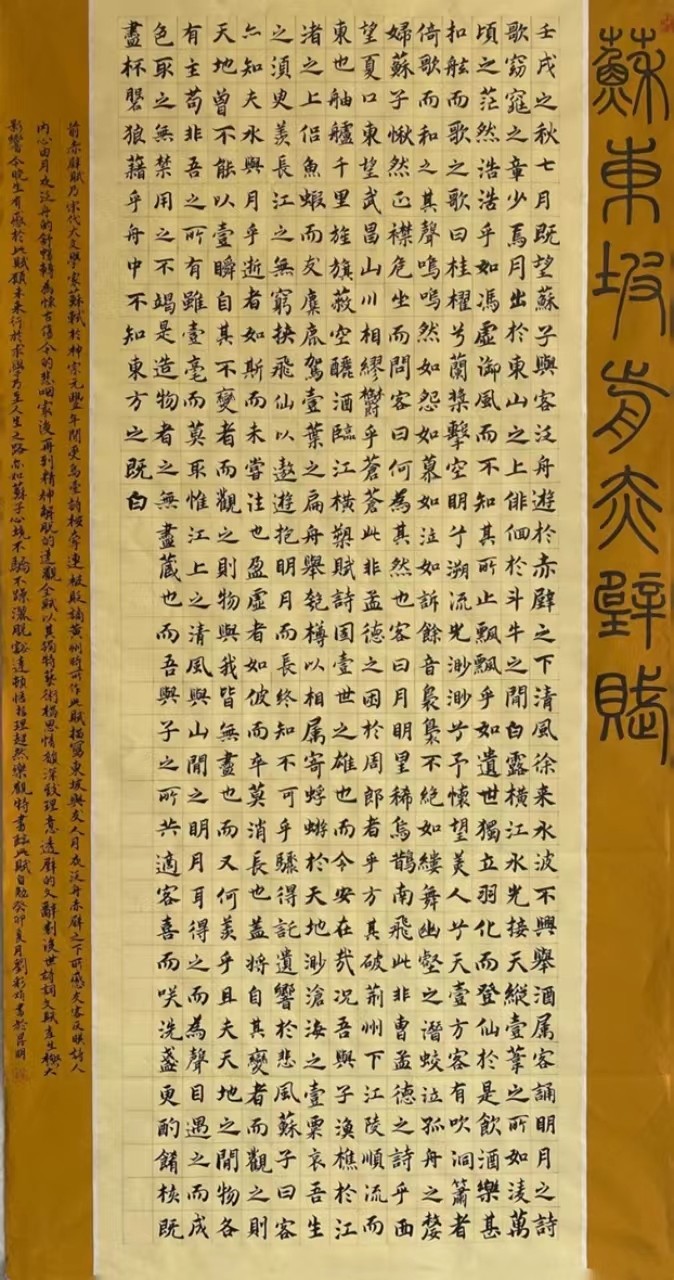 蘇東坡前赤壁賦
壬戌之秋七月既望蘇子與客泛舟遊於赤壁之下清風徐来水波不興舉酒属客誦明月之詩
歌窈窕之章少焉月出於東山之上徘徊於斗牛之間白露橫江水光接天縱壹葦之所如淩萬
頃之茫然浩浩乎如馮虛御風而不知其所止飄飄乎如遺世獨立羽化而登仙於是飲酒樂甚
扣舷而歌之歌曰桂櫂兮蘭槳擊空明兮溯流光渺渺兮予懷望美人兮天壹方客有吹洞簫者
倚歌而和之其聲嗚嗚然如怨如慕如泣如訴餘音裊裊不絕如縷舞幽壑之潛蛟泣孤舟之嫠
婦蘇子愀然正襟危坐而問客曰何為其然也客曰月明星稀烏鵲南飛此非曹孟德之詩乎西
望夏口東望武昌山川相繆鬱乎蒼蒼此非孟德之困於周郎者乎方其破荊州下江陵順流而
東也舳艫千里旌旗蔽空釃酒臨江橫槊賦詩固壹世之雄也而今安在哉况吾與子漁樵於江
渚之上侶魚蝦而友麋鹿駕壹葉之扁舟舉匏樽以相属寄蜉蝣於天地渺滄海之壹粟哀吾生
之須臾羨長江之無窮挾飛仙以遨遊抱明月而長終知不可乎驟得託遺響於悲風蘇子曰客
亦知夫水與月乎逝者如斯而未嘗往也盈虛者如彼而卒莫消長也蓋將自其變者而觀之則
天地曾不能以壹瞬自其不變者而觀之則物與我皆無盡也而又何羨乎且夫天地之間物各
有主苟非吾之所有雖壹毫而莫取惟江上之清風與山間之明月耳得之而為聲目遇之而成
色取之無禁用之不竭是造物者之無盡藏也而吾與子之所共適客喜而笑洗盞更酌餚核既
盡杯盤狼藉乎舟中不知東方之既白
前赤壁賦乃宋代大文學家蘇軾於神宗元豐年間受烏臺詩案牽連被貶謫黃州時所作此賦描寫東坡與友人月夜泛舟赤壁之下所感反映詩人
內心由月夜泛舟的舒暢轉為懷古傷今的悲咽最後再到精神解脫的達觀全賦以其獨特藝術構思情韻深致理意透闢的文辭對後世詩詞文賦產生極大
影響今晚生有感於此賦願未来行於求學乃至人生之路亦如蘇子心境不驕不躁灑脫豁達頓悟哲理超然樂觀特書臨此賦自勉癸卯夏月劉彩書於昆明